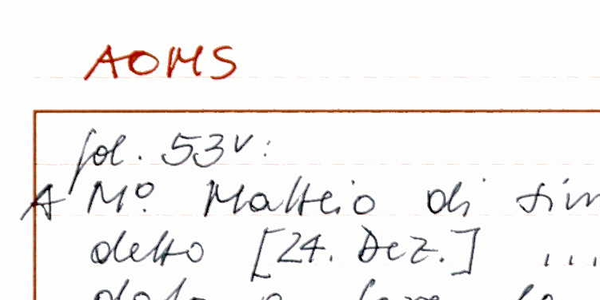 AOMS
fol. 53v:
A Mº Matteio di
detto [24. Dez.] ...